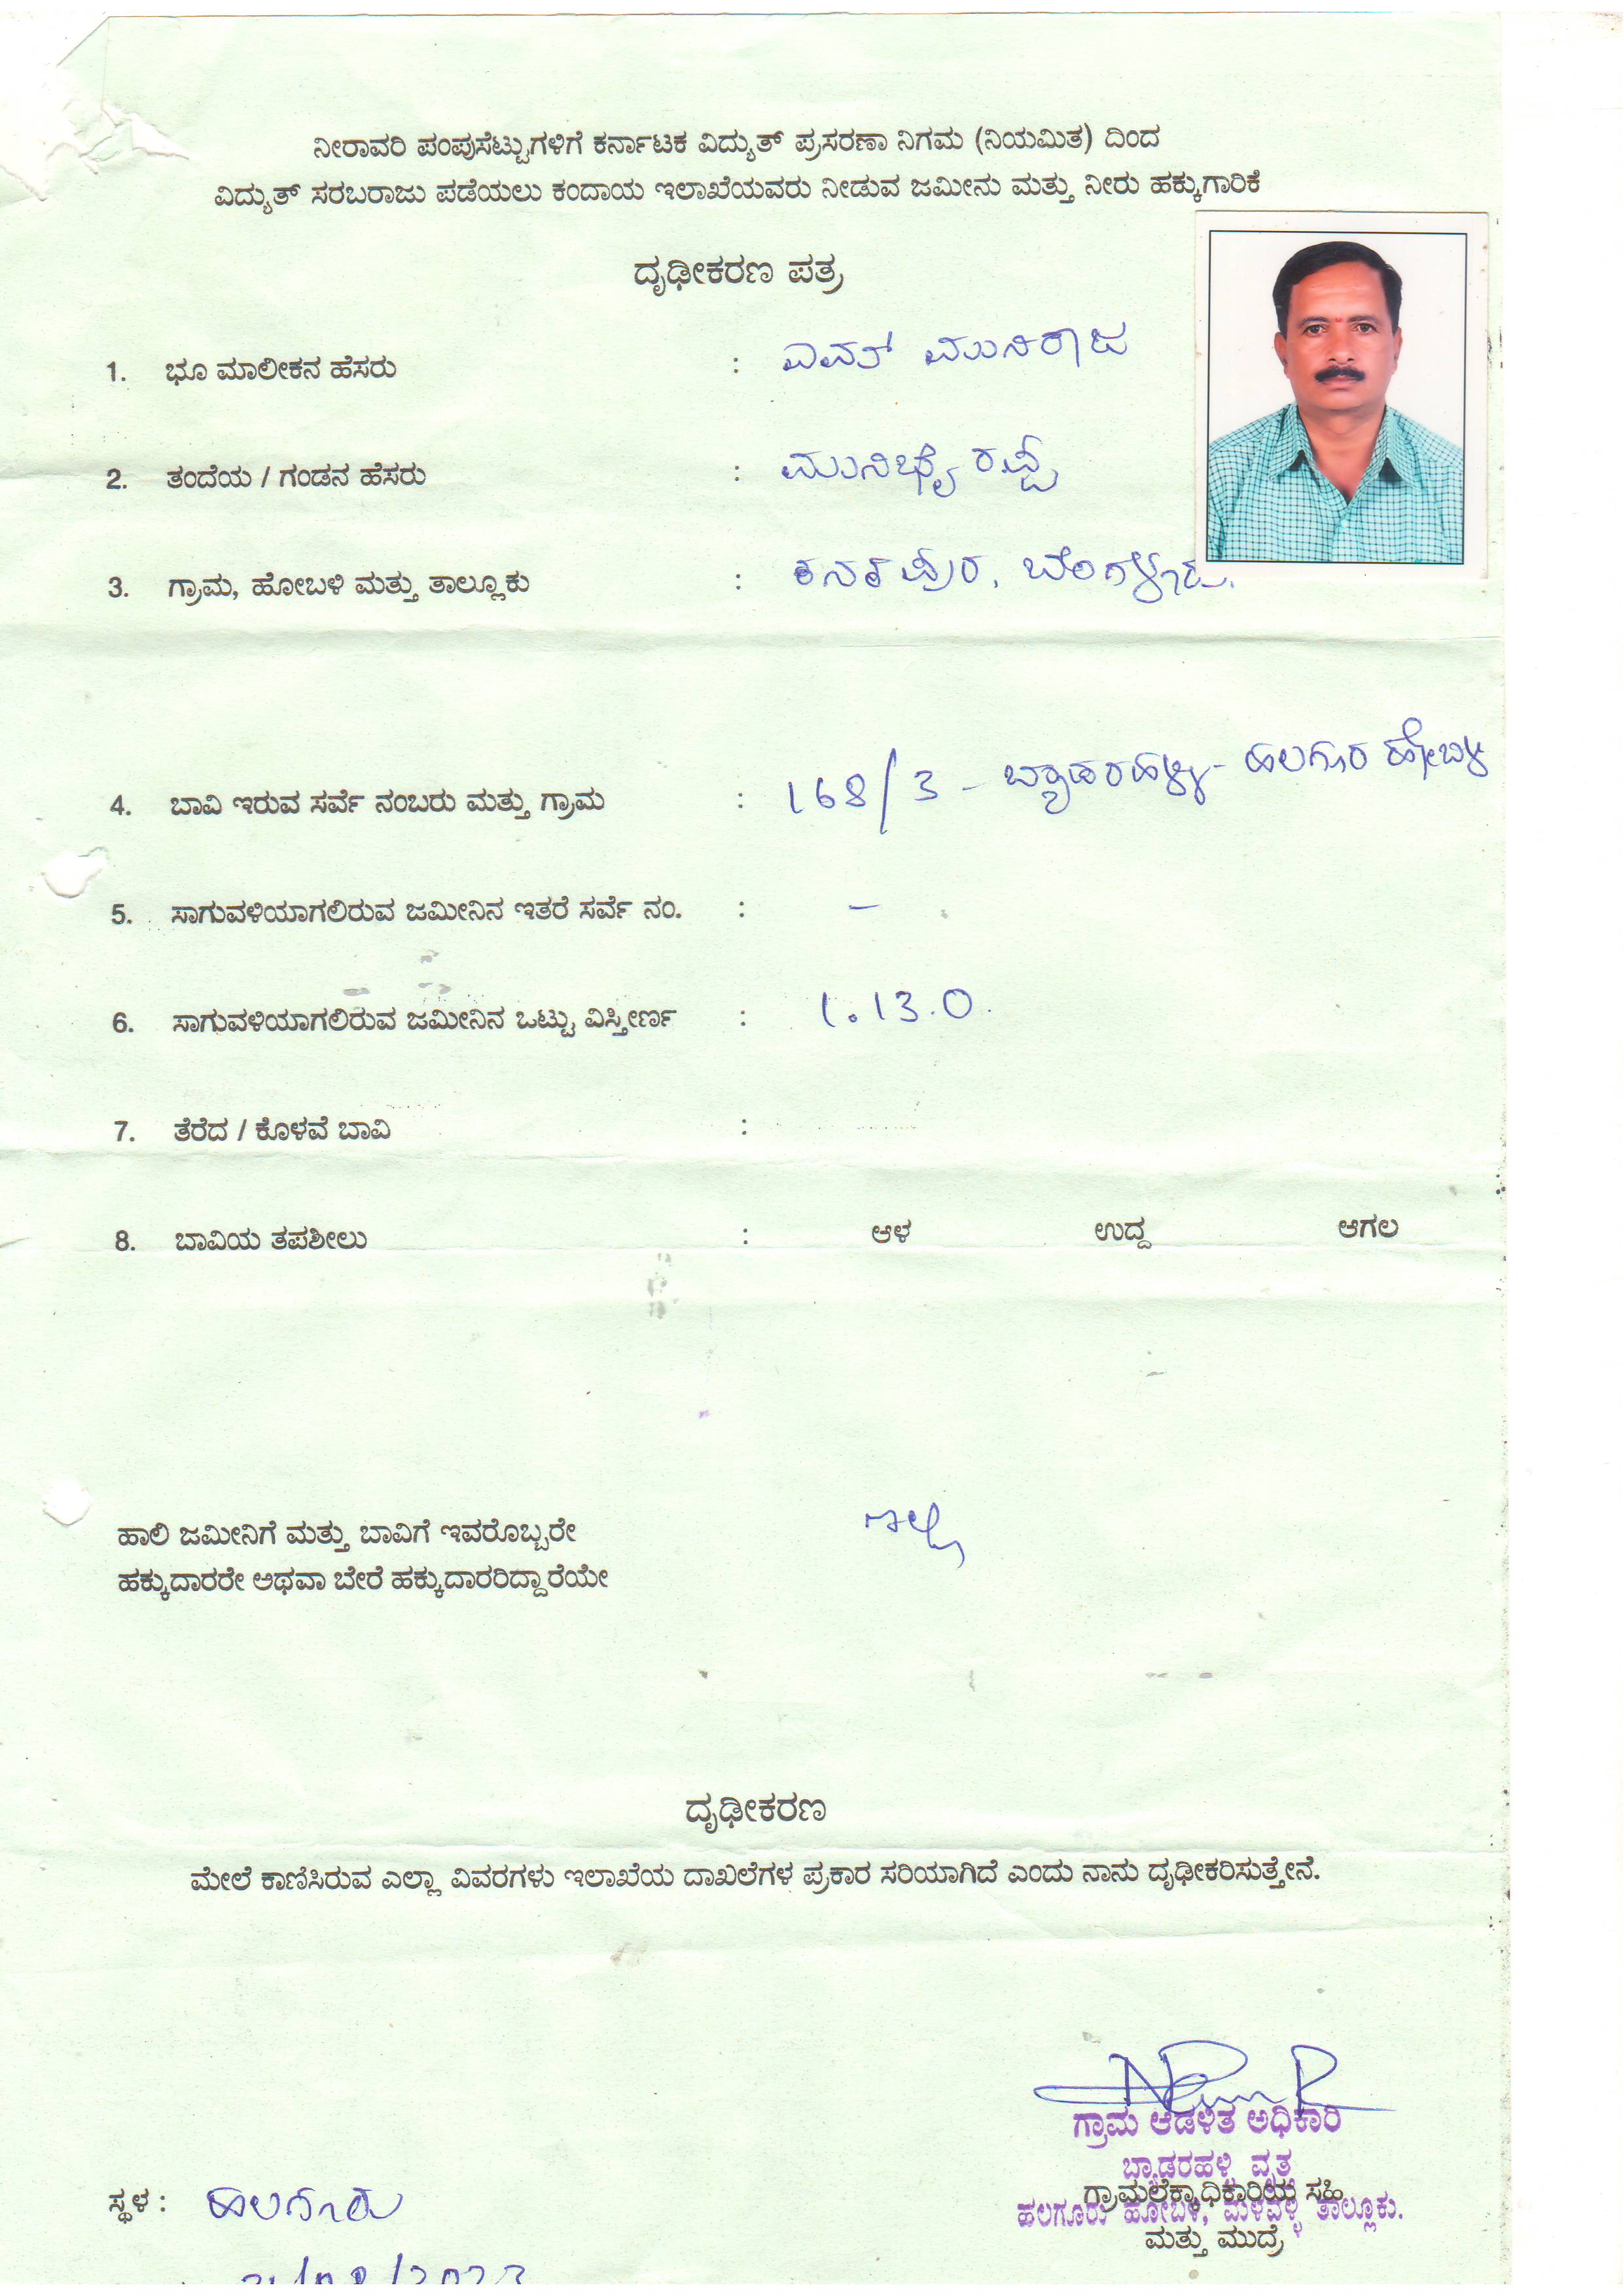 ನೀರಾವರಿ ಪಂಪುಸೆಟ್ಟುಗಳಿಗೆ ಕರ್ನಾಟಕ ವಿದ್ಯುತ್ ಪ್ರಸರಣಾ ನಿಗಮ (ನಿಯಮಿತ) ದಿಂದ
ವಿದ್ಯುತ್ ಸರಬರಾಜು ಪಡೆಯಲು ಕಂದಾಯ ಇಲಾಖೆಯವರು ನೀಡುವ ಜಮೀನು ಮತ್ತು ನೀರು ಹಕ್ಕುಗಾರಿಕೆ
ದೃಢೀಕರಣ ಪತ್ರ
1. ಭೂ ಮಾಲೀಕನ ಹೆಸರು : ಎಮ್ ಮುನಿರಾಜ
2. ತಂದೆಯ / ಗಂಡನ ಹೆಸರು :
3. ಗ್ರಾಮ, ಹೋಬಳಿ ಮತ್ತು ತಾಲ್ಲೂಕು :
4. ಬಾವಿ ಇರುವ ಸರ್ವೆ ನಂಬರು ಮತ್ತು ಗ್ರಾಮ : 168/3 - ಬ್ಯಾಡರಹಳ್ಳಿ - ಹಲಗೂರ ಹೋಬಳಿ
5. ಸಾಗುವಳಿಯಾಗಲಿರುವ ಜಮೀನಿನ ಇತರೆ ಸರ್ವೆ ನಂ. : –
6. ಸಾಗುವಳಿಯಾಗಲಿರುವ ಜಮೀನಿನ ಒಟ್ಟು ವಿಸ್ತೀರ್ಣ : 1.13.0.
7. ತೆರೆದ / ಕೊಳವೆ ಬಾವಿ :
8. ಬಾವಿಯ ತಪಶೀಲು : ಆಳ ಉದ್ದ ಆಗಲ
ಹಾಲಿ ಜಮೀನಿಗೆ ಮತ್ತು ಬಾವಿಗೆ ಇವರೊಬ್ಬರೇ ಇಲ್ಲ
ಹಕ್ಕುದಾರರೇ ಅಥವಾ ಬೇರೆ ಹಕ್ಕುದಾರರಿದ್ದಾರೆಯೇ
ದೃಢೀಕರಣ
ಮೇಲೆ ಕಾಣಿಸಿರುವ ಎಲ್ಲಾ ವಿವರಗಳು ಇಲಾಖೆಯ ದಾಖಲೆಗಳ ಪ್ರಕಾರ ಸರಿಯಾಗಿದೆ ಎಂದು ನಾನು ದೃಢೀಕರಿಸುತ್ತೇನೆ.
ಗ್ರಾಮ ಆಡಳಿತ ಅಧಿಕಾರಿ
ಬ್ಯಾಡರಹಳ್ಳಿ ವೃತ್ತ
ಗ್ರಾಮಲೆಕ್ಕಾಧಿಕಾರಿಯ ಸಹಿ
ಹಲಗೂರು ಹೋಬಳಿ, ಮಳವಳ್ಳಿ ತಾಲ್ಲೂಕು.
ಮತ್ತು ಮುದ್ರೆ
ಸ್ಥಳ : ಹಲಗೂರು